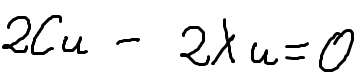 2Cu - 2Xu=0